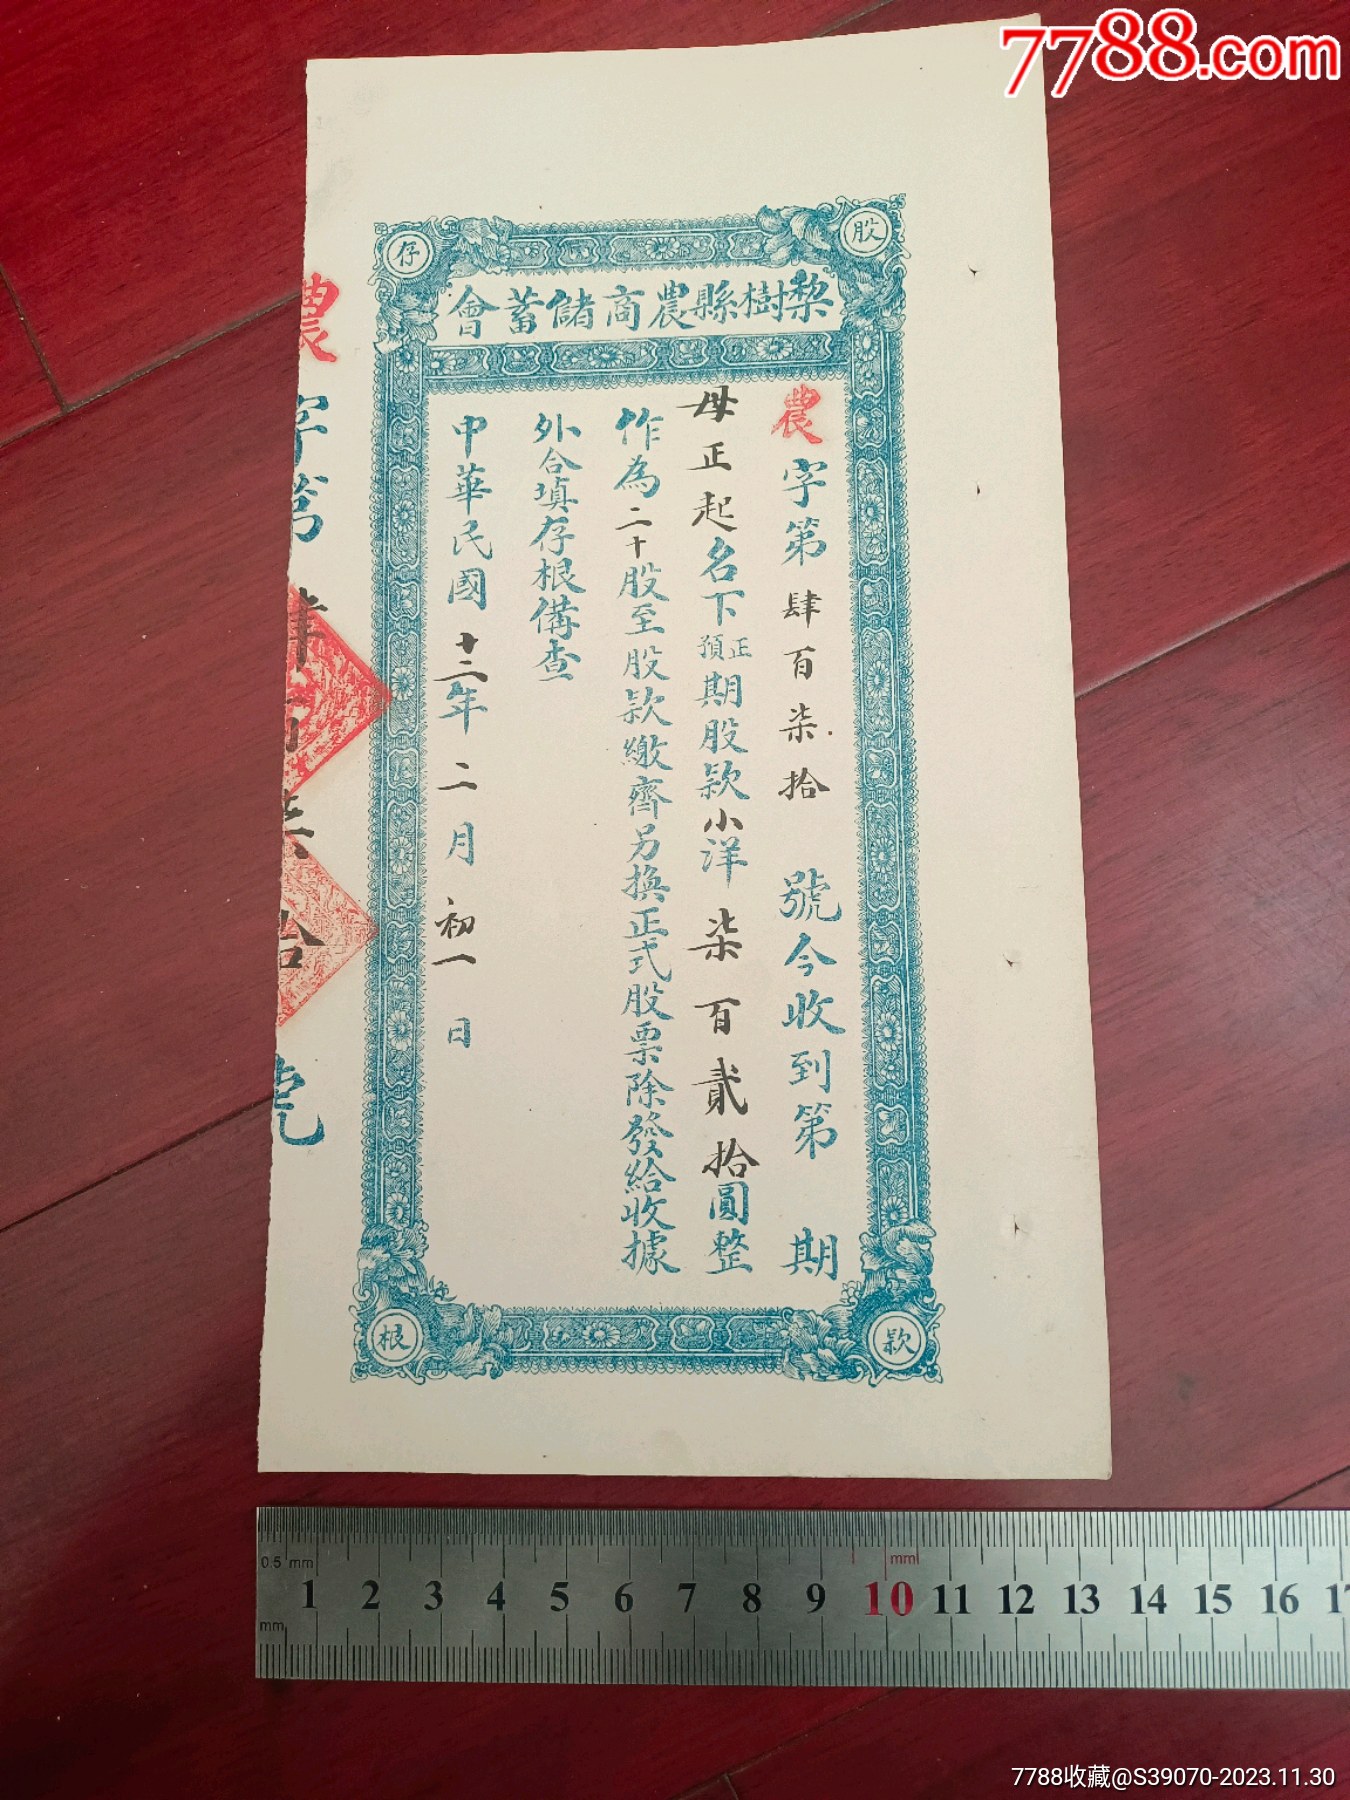 7788.com
股款存根
梨樹縣農商儲蓄會
農字第肆百柒拾號今收到第期
毋正起名下正預期股款小洋柒百貳拾圓整
作為二十股至股款繳齊另換正式股票除發給收據
外合填存根備查
中華民國十二年二月初一日
農字第肆百柒拾號
0.5 mm
mm
mm
1 2 3 4 5 6 7 8 9 10 11 12 13 14 15 16 17
7788收藏@S39070-2023.11.30